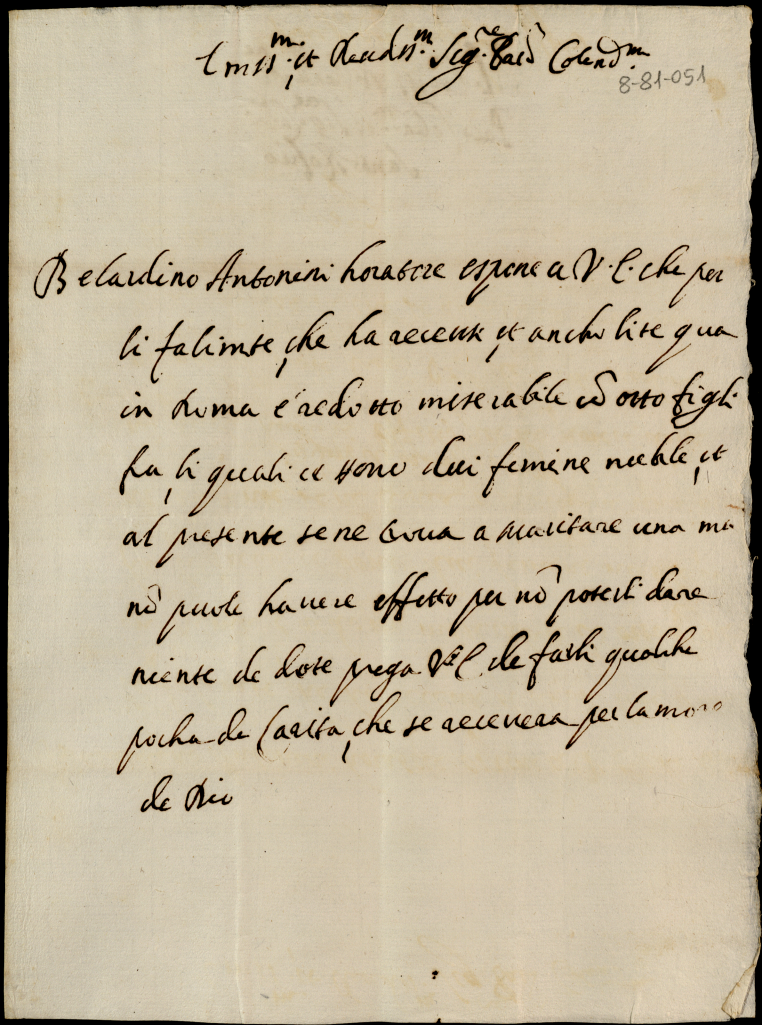 Emiss.m et Reverdiss.m Sig.re Pad.n Colend.m
8-81-051
Belardino Antonini horatore espone a V. E. che per
li falimte, che ha recente et ancho lite qua
in Roma é redotto miserabile cõ otto figli
fra li quali ce sono dui femine nubile, et
al presente se ne trova a maritare una ma
nõ puole havere effetto per nõ poterli dare
niente de dote prega V.E. de farli qualche
pocha de Carita, che se recevera per lamore
de Dio